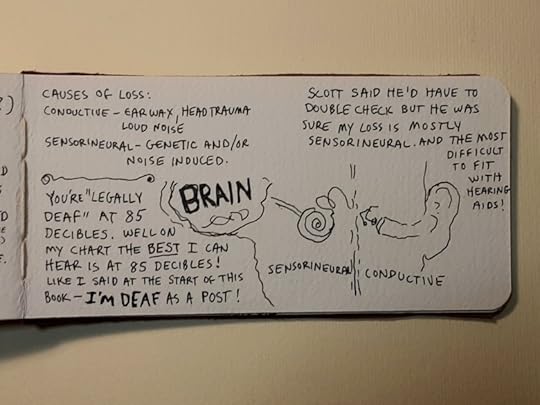 ?)
CAUSES OF LOSS:
CONDUCTIVE - EAR WAX, HEAD TRAUMA
LOUD NOISE
SENSORINEURAL - GENETIC AND/OR
NOISE INDUCED.
YOU'RE "LEGALLY
DEAF" AT 85
DECIBLES. WELL ON
MY CHART THE BEST I CAN
HEAR IS AT 85 DECIBLES!
LIKE I SAID AT THE START OF THIS
BOOK - I'M DEAF AS A POST!
BRAIN
SCOTT SAID HE'D HAVE TO
DOUBLE CHECK BUT HE WAS
SURE MY LOSS IS MOSTLY
SENSORINEURAL. AND THE MOST
DIFFICULT
TO FIT
WITH
HEARING
AIDS!
SENSORINEURAL
CONDUCTIVE